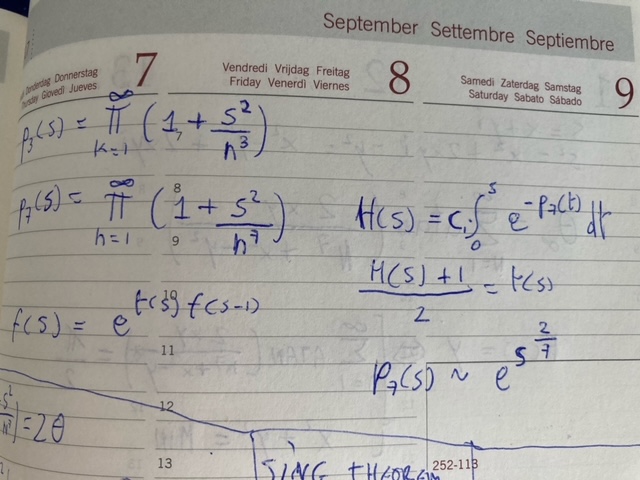 September Settembre Septiembre
Donderdag Donnerstag
Thursday Giovedì Jueves
7
Vendredi Vrijdag Freitag
Friday Venerdì Viernes
8
Samedi Zaterdag Samstag
Saturday Sabato Sábado
9
p₃(s) = ∏_{k=1}^{∞} (1 + s²/n³)
7
p₇(s) = ∏_{n=1}^{∞} (1 + s²/n⁷)
8
9
H(s) = c₁ ∫₀ˢ e^{-p₇(t)} dt
(H(s) + 1)/2 = t(s)
10
f(s) = e^{t(s) f(s-1)}
11
p₇(s) ~ e^{s^{2/7}}
12
= 2θ
13
252-113
SING THEOREM